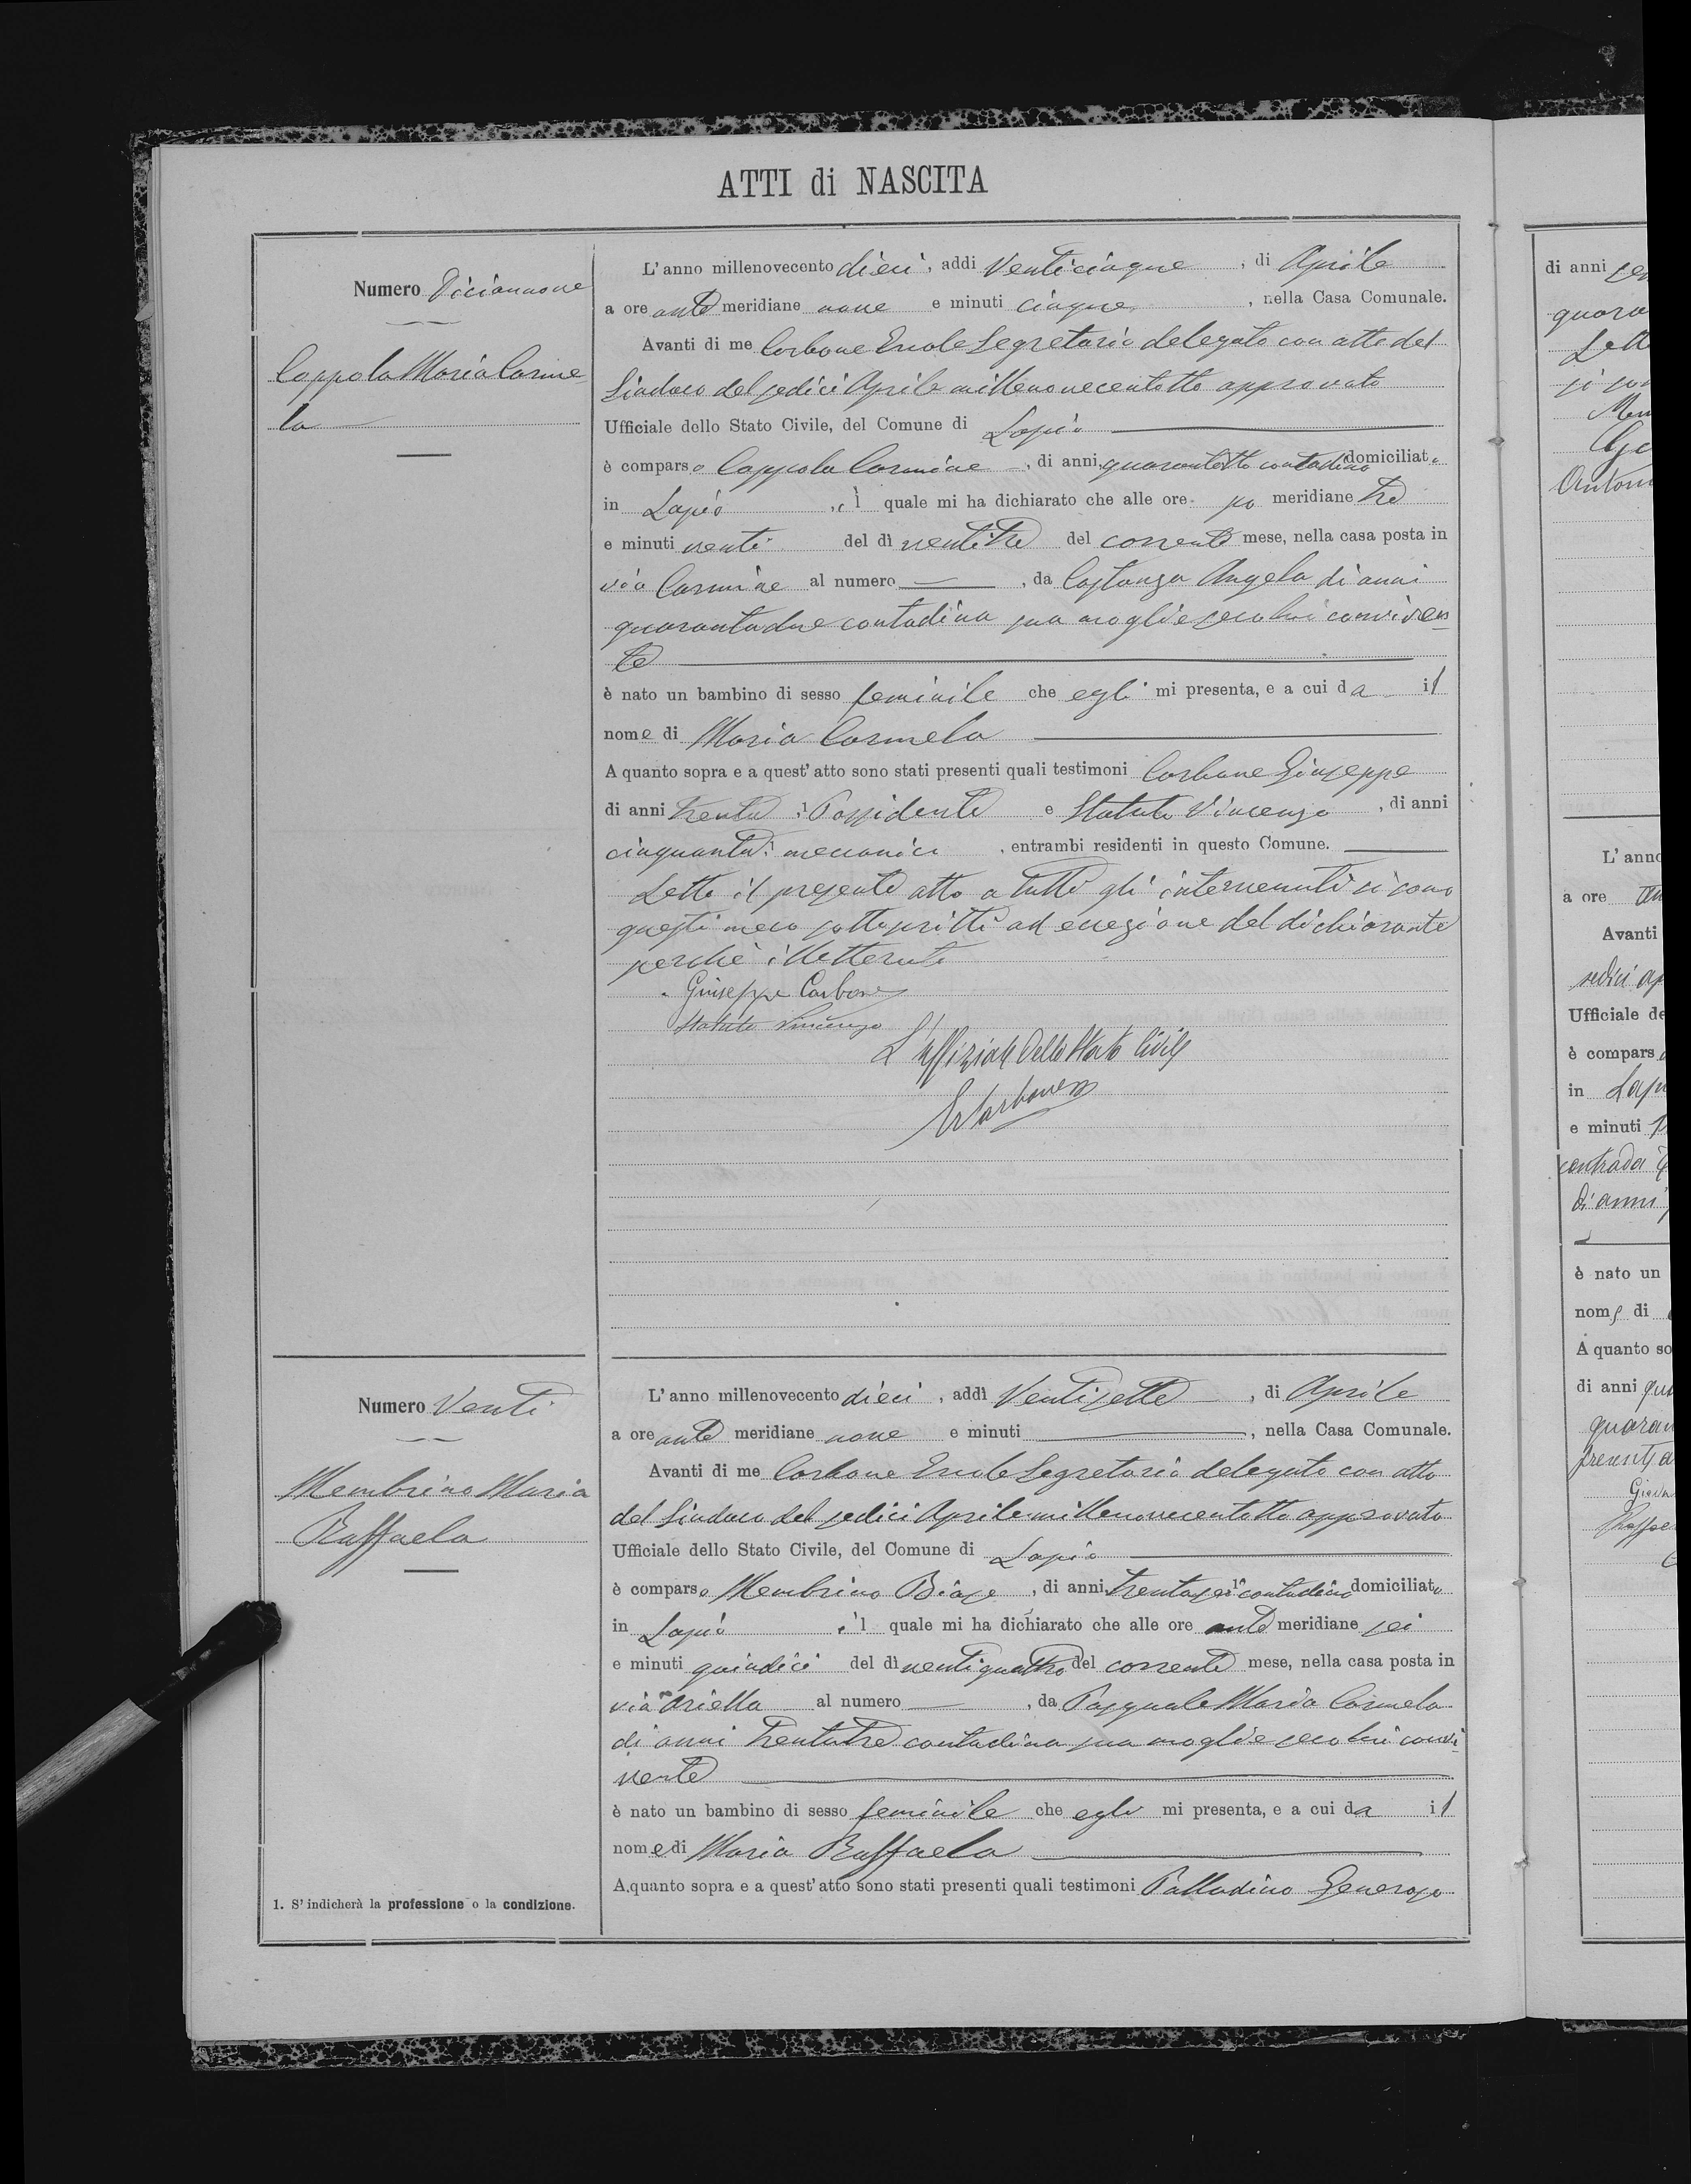 ATTI di NASCITA
Numero Diciannove
Coppola Maria Carme
la
L'anno millenovecento dieci, addì Venticinque, di Aprile
a ore ante meridiane nove e minuti cinque, nella Casa Comunale.
Avanti di me Carbone Ercole Segretario delegato con atto del
Sindaco del sedici Aprile millenovecentotto approvato
Ufficiale dello Stato Civile, del Comune di Lapio
è comparso Coppola Carmine, di anni quarantotto contadino domiciliato
in Lapio, il quale mi ha dichiarato che alle ore po meridiane tre
e minuti venti del dì ventitre del corrente mese, nella casa posta in
via Carmine al numero, da Costanza Angela di anni
quarantadue contadina sua moglie seco lui conviven
te
è nato un bambino di sesso feminile che egli mi presenta, e a cui da il
nome di Maria Carmela
A quanto sopra e a quest' atto sono stati presenti quali testimoni Carbone Giuseppe
di anni trenta, Possidente e Statuto Vincenzo, di anni
cinquanta, meccanici, entrambi residenti in questo Comune.
Letto il presente atto a tutti gli intervenuti si sono
questi meco sottoscritti ad eccezione del dichiarante
perchè illetterato
Giuseppe Carbone
Statuto Vincenzo
L'Uffiziale dello Stato Civile
E Carbone
Numero Venti
Membrino Maria
Raffaela
L'anno millenovecento dieci, addì Ventisette, di Aprile
a ore ante meridiane nove e minuti, nella Casa Comunale.
Avanti di me Carbone Ercole Segretario delegato con atto
del Sindaco del sedici Aprile millenovecentotto approvato
Ufficiale dello Stato Civile, del Comune di Lapio
è comparso Membrino Biase, di anni trentasei contadino domiciliato
in Lapio, il quale mi ha dichiarato che alle ore ante meridiane sei
e minuti quindici del dì ventiquattro del corrente mese, nella casa posta in
via Ariella al numero, da Pasquale Maria Carmela
di anni trentatre contadina sua moglie seco lui convi
vente
è nato un bambino di sesso feminile che egli mi presenta, e a cui da il
nome di Maria Raffaela
A quanto sopra e a quest' atto sono stati presenti quali testimoni Palladino Generoso
1. S' indicherà la professione o la condizione.
di anni
quara
Lett
si son
Antoni
L' anno
a ore an
Avanti
sedici ap
Ufficiale de
è compars
in Lapi
e minuti
contrada
di anni
è nato un
nome di
A quanto so
di anni qua
quaran